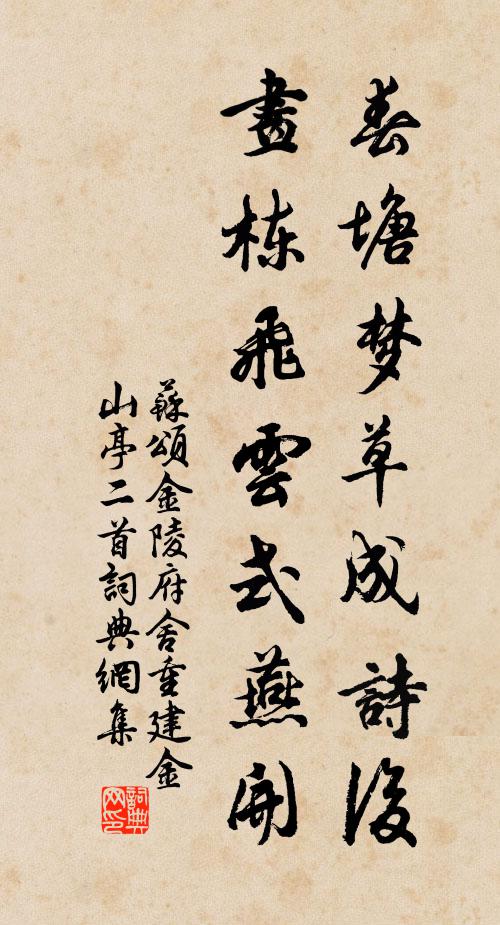 春塘梦草成詩後
畫栋飛雲式燕開
蘇頌金陵府舍重建金
山亭二首詞典網集
詞典
网印